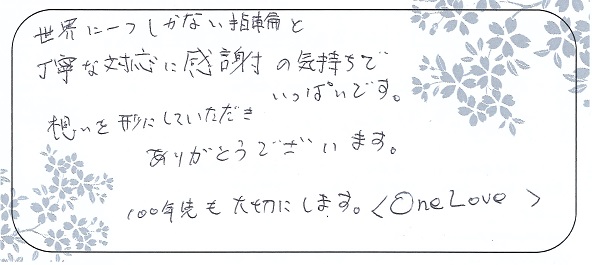 世界に一つしかない指輪と
丁寧な対応に感謝の気持ちで
いっぱいです。
想いを形にしていただき
ありがとうございます。
100年先も大切にします。<One Love >